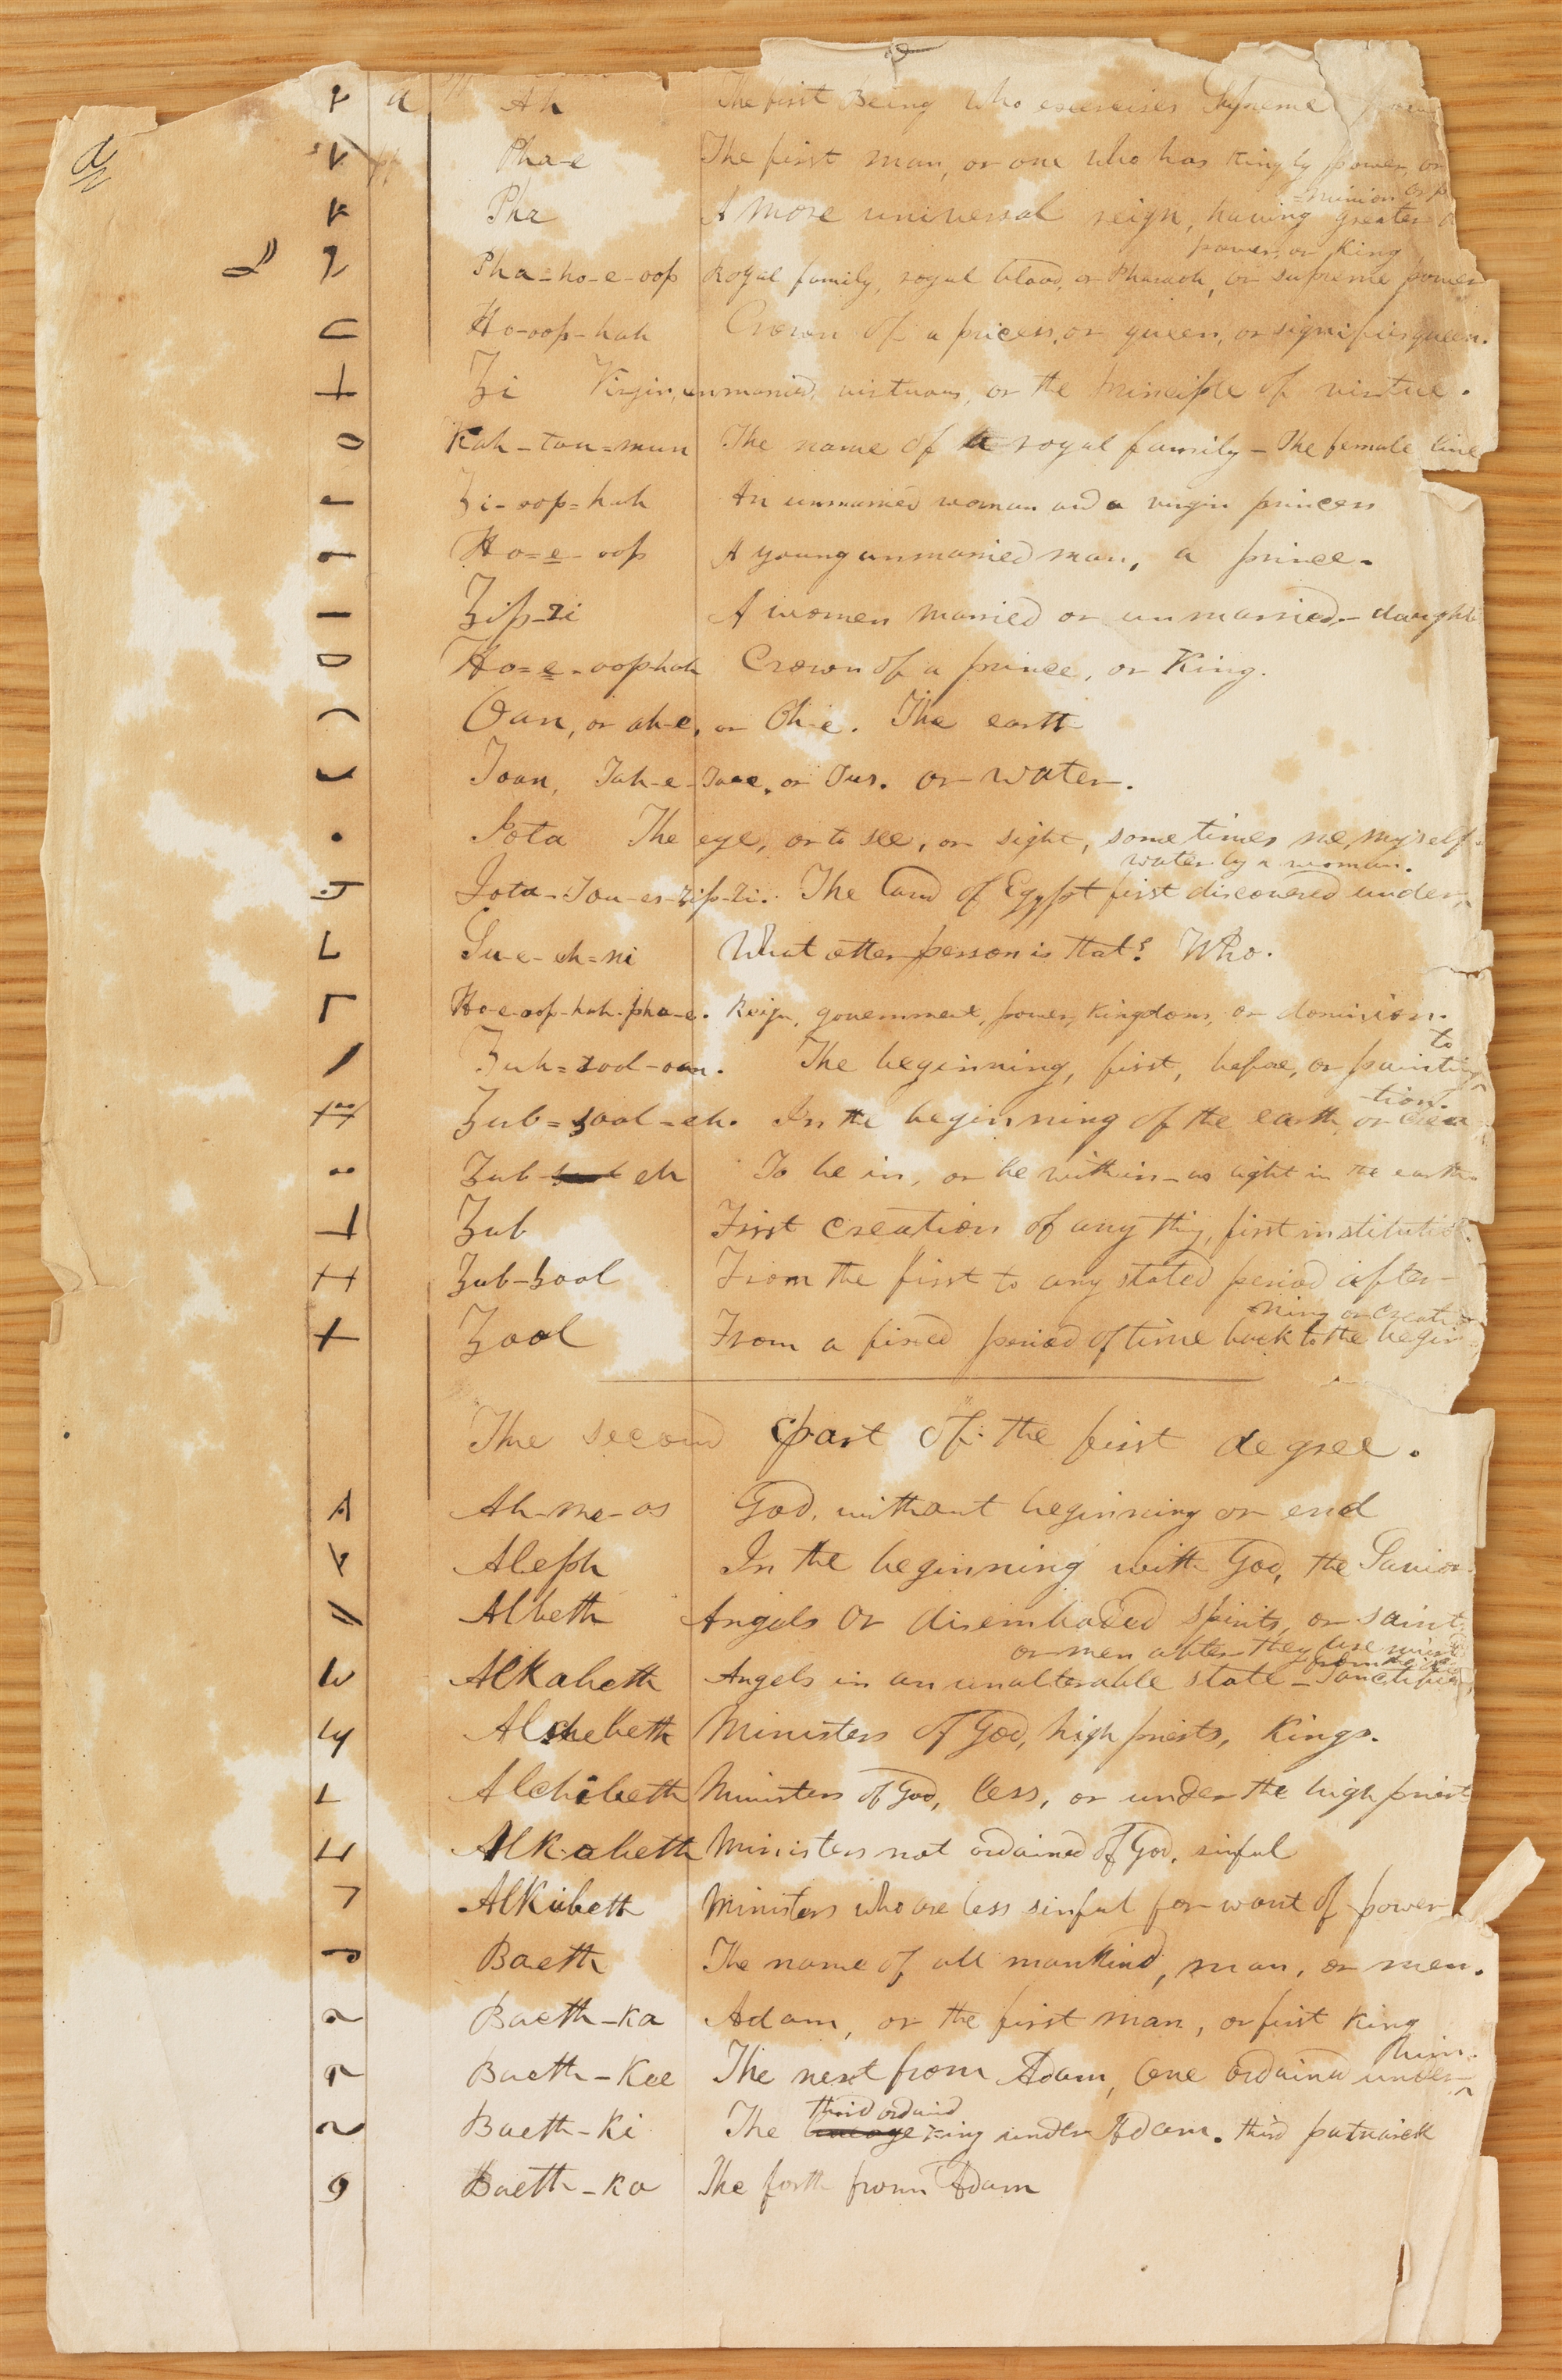 a Ah The first Being who exercises Supreme
Pha-e The first man, or one who has Kingly power, or
=minion or p
Pha A more universal reign, having greater
power, or King
Pha=ho-e-oop Royal family, royal blood, or Pharaoh, or supreme power
Ho-oop-hah Crown of a princess, or queen, or signifies queen.
Zi Virgin, unmarried, virtuous, or the principle of virtue.
Kah-tou=mun The name of a royal family - The female line
Zi-oop=hah An unmarried woman and a virgin princess
Ho=e-oop A young unmarried man, a prince.
Zip-zi A women married or unmarried - daught
Ho=e-oop hah Crown of a prince, or King.
Oan, or ah-e, or Oh-e. The earth
Toan, Tah-e-Tooe, or Tus. or water.
Iota The eye, or to see, or sight, sometimes me, myself
water by a woman.
Iota-Tou-es-zip-zi. The land of Egypt first discovered under
Su-e-eh=ni What other person is that? Who.
Ho-e-oop-hah-pha-e. Reign, government, power, Kingdom, or dominion.
to
Zub=zool-oan. The beginning, first, before, or pointing
tion.
Zub=zool=eh. In the beginning of the earth or crea
Zub-zool eh To be in, or be within - as light in the earth
Zub First creation of any thing, first institution.
Zub-Zool From the first to any stated period after-
ning or creation
Zool From a fixed period of time back to the begin
The second part of the first degree.
Ah-me-os God, without beginning or end
Aleph In the beginning with God, the Savior
Albeth Angels or disembodied spirits, or saint
or men after they are
Alkabeth Angels in an unalterable state - Sanctified
Alchebeth Ministers of God, high priests, Kings.
Alchibeth Ministers of God, less, or under the high priest
Alkobeth Ministers not ordained of God, sinful
Alkubeth Ministers who are less sinful for want of power
Baeth The name of all mankind, man, or men.
Baeth-Ka Adam, or the first man, or first King
him.
Baeth-Kee The next from Adam, one ordained under
third ordaind
Baeth-Ki The King under Adam. third patriarch
Baeth-Ko The forth from Adam